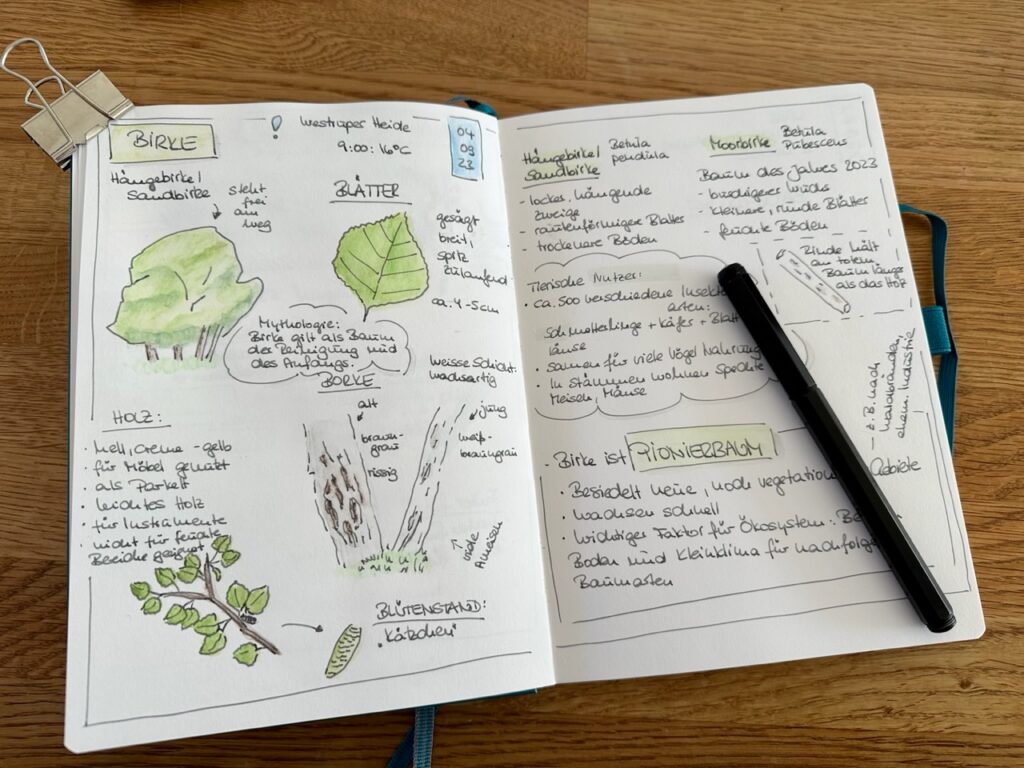 BIRKE
Westruper Heide
9:00: 16°C
04
09
23
Hängebirke/
Sandbirke
steht
frei
am
Weg
BLÄTTER
gesägt
breit,
spitz
zulaufend
ca. 4-5cm
Mythologie:
Birke gilt als Baum
der Reinigung und
des Anfangs.
BORKE
weisse Schicht:
wachsartig
alt
braun-
grau
rissig
jung
weiß-
braungrau
viele
Ameisen
HOLZ:
· hell, creme-gelb
· für Möbel genutzt
· als Parkett
· leichtes Holz
· für Instrumente
· nicht für feuchte
Bereiche geeignet
BLÜTENSTAND:
"Kätzchen"
Hängebirke/
Sandbirke
Betula
pendula
- locker, hängende
Zweige
- rautenförmige Blätter
- trockenere Böden
Moorbirke
Betula
Pubescens
Baum des Jahres 2023
- buschigerer Wuchs
- kleinere, runde Blätter
- feuchte Böden
Rinde hält
an totem
Baum länger
als das Holz
Tierische Nutzer:
· ca. 500 verschiedene Insekt
arten:
Schmetterlinge + Käfer + Blatt
läuse
· Samen für viele Vögel Nahrung
· In Stämmen wohnen Spechte
Meisen, Mäuse
- Birke ist PIONIERBAUM
· Besiedelt neue, noch vegetation Gebiete
→ z.B. nach
Waldbränden,
ehem. Industrie
· wachsen schnell
· wichtiger Faktor für Ökosystem:
Boden und Kleinklima für nachfolg
Baumarten